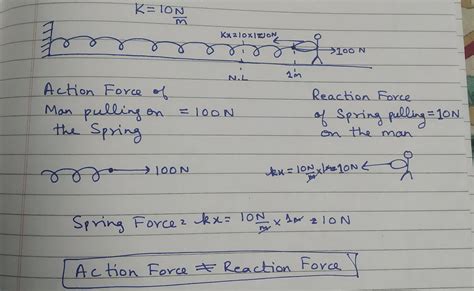 K = 10 N/m
Kx=10x1=10N
100 N
N.L
1m
Action Force of
Man pulling on = 100N
the Spring
Reaction Force
of Spring pulling = 10N
on the man
100N
kx = 10N/m x 1m = 10N
Spring Force = kx = 10N/m x 1m = 10N
Action Force ≠ Reaction Force